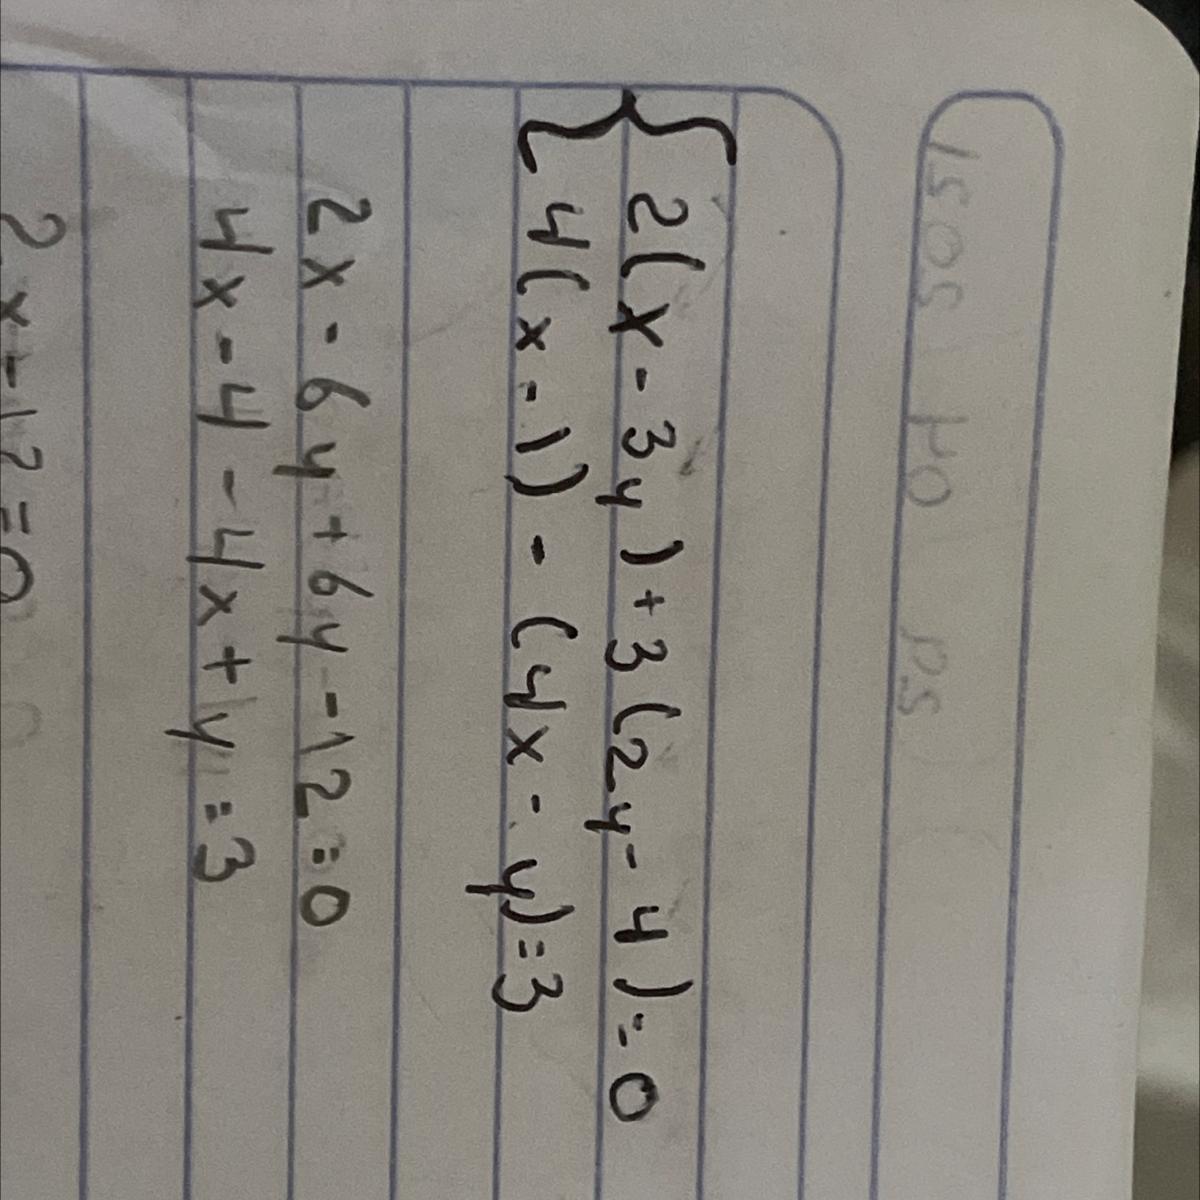 2(x-3y)+3(2y-4)=0
4(x-1)-(4x-y)=3
2x-6y+6y-12=0
4x-4-4x+y=3
2x-12=0